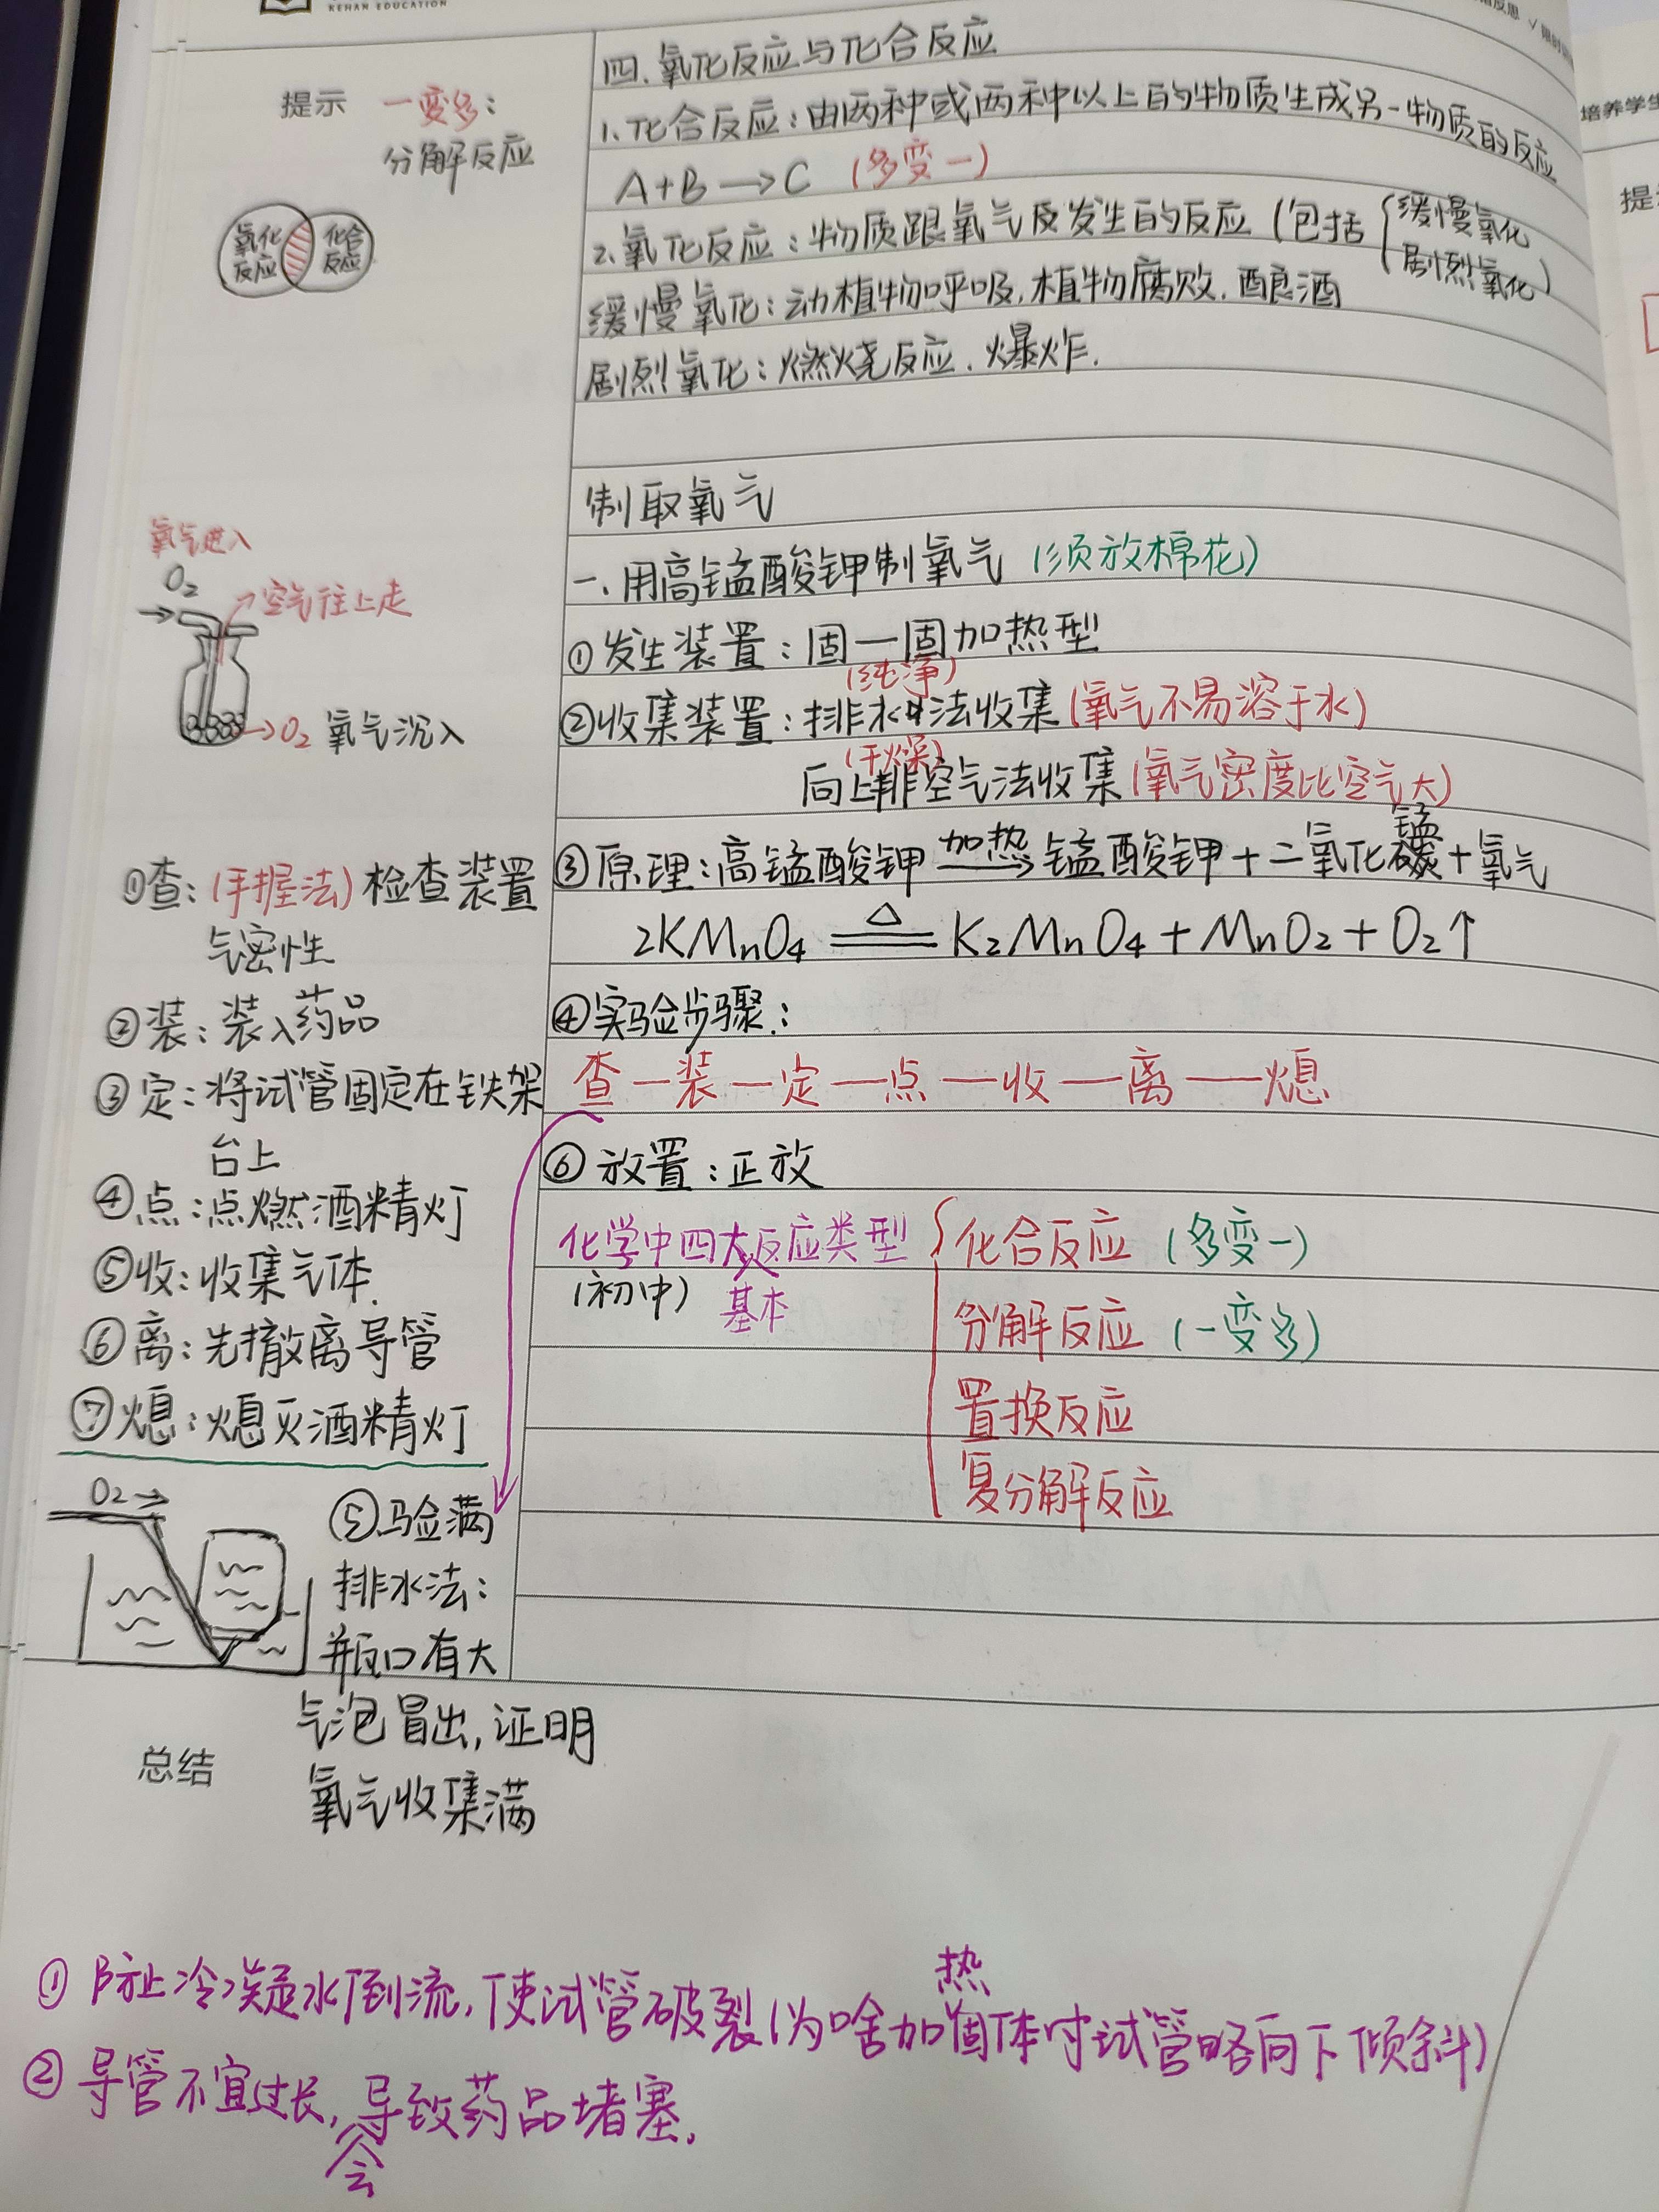 KEHAN EDUCATION
培养学生
提示
一变多：
分解反应
氧化反应
化合反应
四.氧化反应与化合反应
1.化合反应：由两种或两种以上的物质生成另一物质的反应
A+B→C (多变一)
2.氧化反应：物质跟氧气反发生的反应(包括{缓慢氧化
剧烈氧化)
缓慢氧化：动植物呼吸,植物腐败.酿酒
剧烈氧化：燃烧反应.爆炸.
制取氧气
一.用高锰酸钾制氧气 (须放棉花)
①发生装置：固—固加热型
(纯净)
②收集装置：排水法收集(氧气不易溶于水)
(干燥)
向上排空气法收集(氧气密度比空气大)
③原理：高锰酸钾 加热→ 锰酸钾+二氧化锰+氧气
2KMnO₄ ≜ K₂MnO₄+MnO₂+O₂↑
④实验步骤：
查—装—定—点—收—离—熄
⑥放置：正放
化学中四大反应类型
(初中) 基本
{化合反应 (多变一)
分解反应 (一变多)
置换反应
复分解反应
氧气进入
O₂
→空气往上走
→O₂ 氧气沉入
①查：(手握法)检查装置
气密性
②装：装入药品
③定：将试管固定在铁架
台上
④点：点燃酒精灯
⑤收：收集气体.
⑥离：先撤离导管
⑦熄：熄灭酒精灯
O₂→
⑤验满
排水法：
瓶口有大
气泡冒出,证明
氧气收集满
总结
①防止冷凝水倒流,使试管破裂(为啥加热固体时试管略向下倾斜)
②导管不宜过长,会导致药品堵塞.